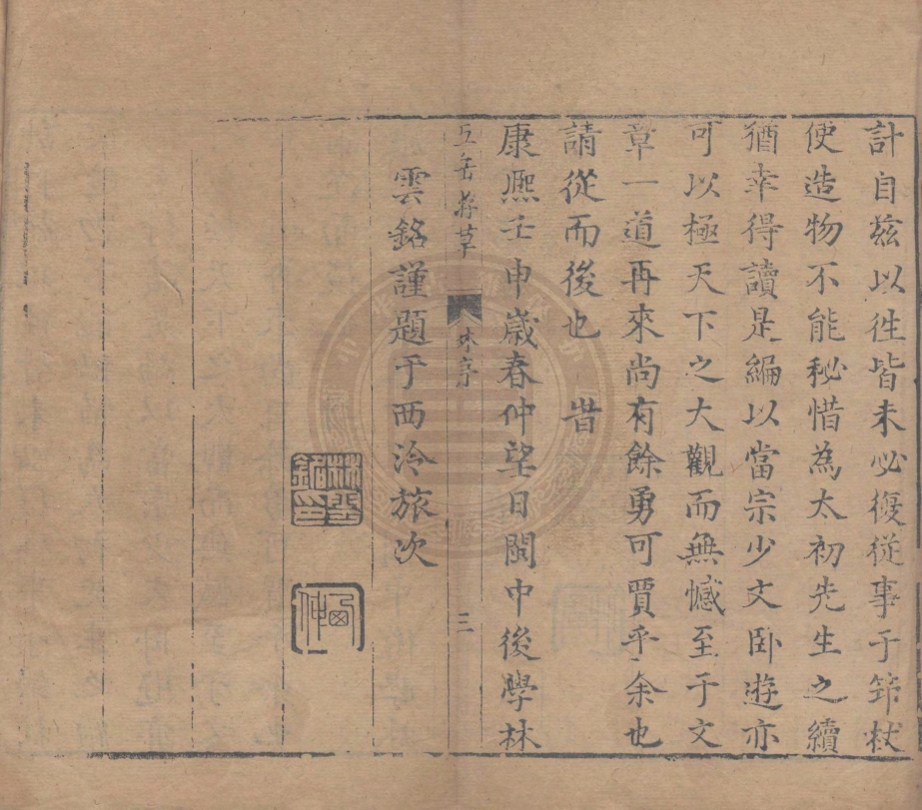 計自茲以徃皆未必復従事于笻杖
使造物不能秘惜為太初先生之續
猶幸得讀是編以當宗少文卧遊亦
可以極天下之大觀而無憾至于文
章一道再來尚有餘勇可賈乎余也
請從而後也　旹
康熈壬申嵗春仲望日閩中後學林
五岳游草　林序　三
雲銘謹題于西泠旅次
林雲銘印
西仲